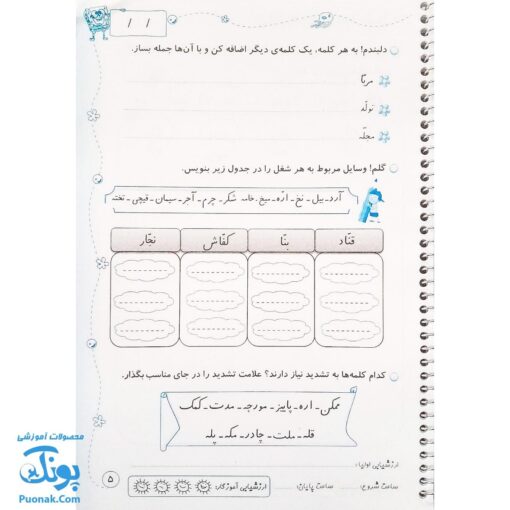 / /
دلبندم! به هر کلمه، یک کلمه‌ی دیگر اضافه کن و با آن‌ها جمله بساز.
مربّا
تولّه
محلّه
گلم! وسایل مربوط به هر شغل را در جدول زیر بنویس.
آرد ـ بیل ـ نخ ـ ارّه ـ میخ ـ خامه ـ شکر ـ چرم ـ آجر ـ سیمان ـ قیچی ـ تخته
قنّاد بنّا کفّاش نجّار
کدام کلمه‌ها به تشدید نیاز دارند؟ علامت تشدید را در جای مناسب بگذار.
ممکن ـ اره ـ پاییز ـ مورچه ـ مدت ـ کمک
قله ـ ملت ـ چادر ـ مکه ـ پله
ارزشیابی اولیا:
ساعت شروع: ساعت پایان: ارزشیابی آموزگار:
۵
محصولات آموزشی
پونک
Puonak.Com